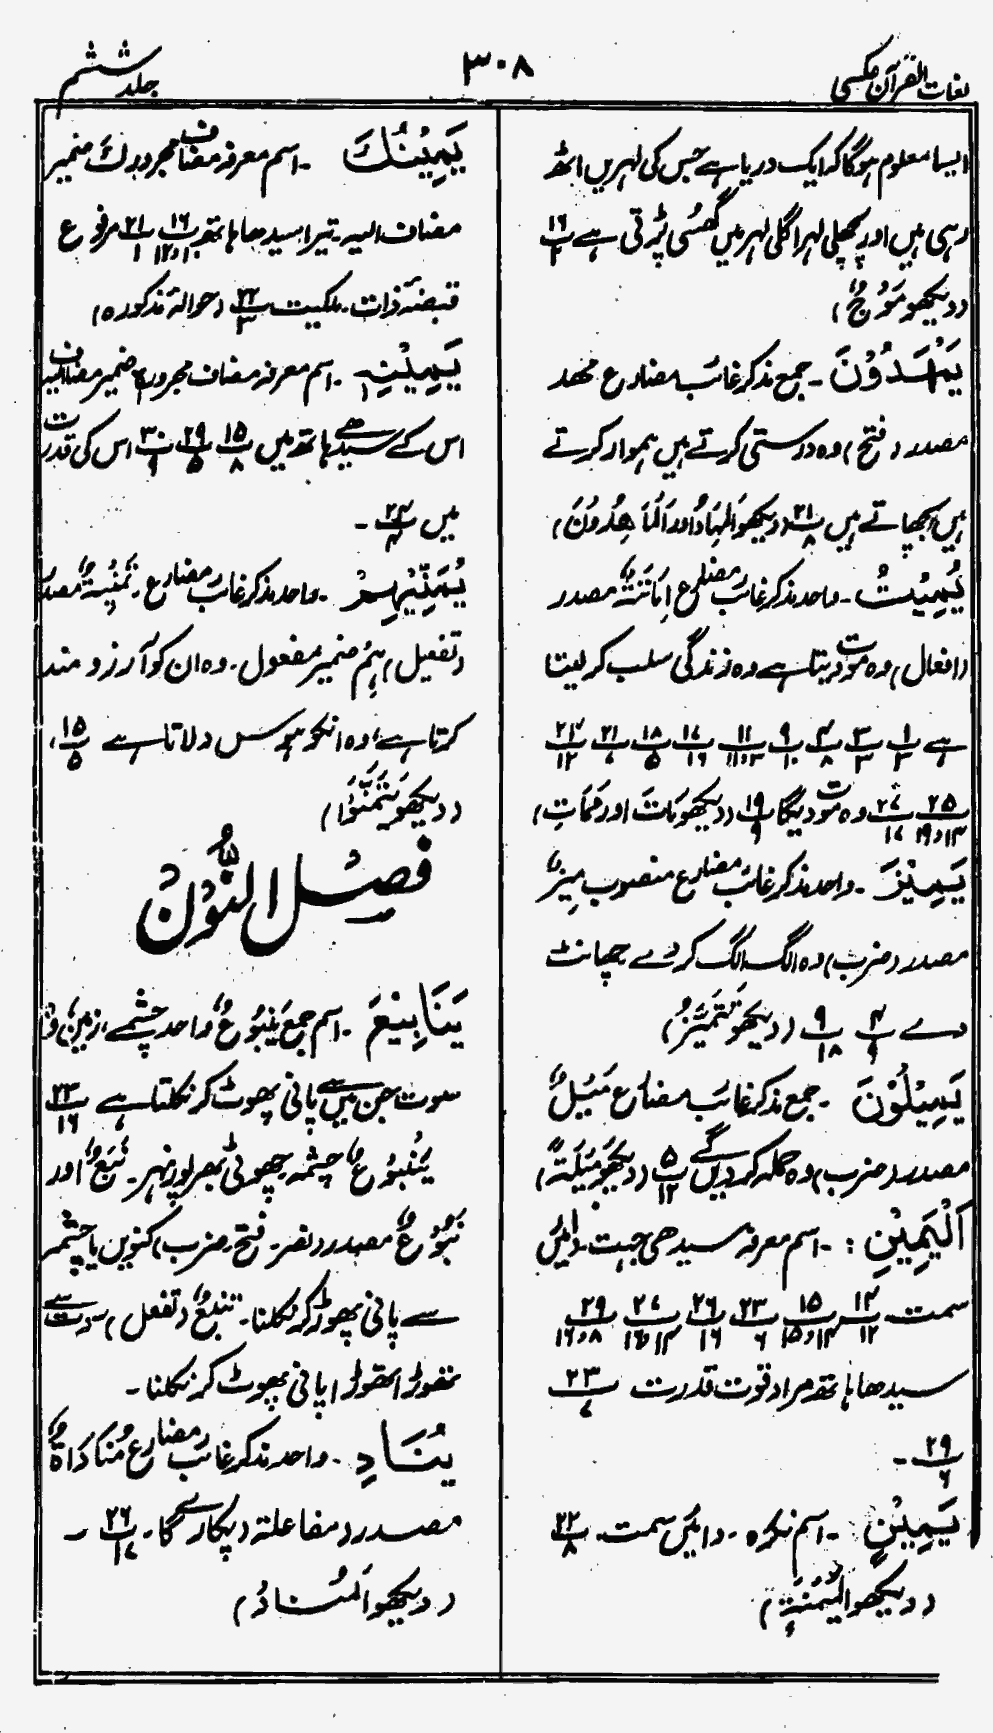 لغات القرآن عکسی
۳۰۸
جلد ششم
ایسا معلوم ہوگا کہ ایک دریا ہے جس کی لہریں اٹھ
رہی ہیں اور پچھلی لہر اگلی لہر میں گھسی پڑتی ہے ۱۶/۲
(دیکھو مَوْجٌ)
یَمْهَدُوْنَ ۔ جمع مذکر غائب مضارع مهد
مصدر (فتح) وہ درستی کرتے ہیں ہموار کرتے
ہیں بچھاتے ہیں ۲۱/۸ (دیکھو اَلْمِهَادُ اور اَلْمَاهِدُوْنَ)
یُمِیْتُ ۔ واحد مذکر غائب مضارع اِمَاتَةٌ مصدر
(افعال) وہ موت دیتا ہے وہ زندگی سلب کر لیتا
ہے ۱/۳ ۳/۳ ۴/۸ ۹/۱۰ ۱۱/۳و۱۱ ۱۷/۱۶ ۱۸/۵ ۲۱/۷ ۲۴/۱۲
۲۵/۱۴و۱۹ ۲۷/۱۷ وہ موت دیگا ۱۹/۹ (دیکھو مَاتَ اور مَمَاتِ)
یَمِیْزَ ۔ واحد مذکر غائب مضارع منصوب مَیْزٌ
مصدر (ضرب) وہ الگ الگ کر دے چھانٹ
دے ۴/۹ ۹/۱۸ (دیکھو تَمَیَّزُ)
یَمِیْلُوْنَ ۔ جمع مذکر غائب مضارع مَیْلٌ
مصدر (ضرب) وہ حملہ کر دیں گے ۵/۱۲ (دیکھو مَیْلَةً)
اَلْیَمِیْنِ : ۔ اسم معرفہ سیدھی جہت۔ دائیں
سمت ۱۴/۱۲ ۱۵/۱۴و۱۵ ۲۳/۶ ۲۶/۱۶ ۲۷/۱۴و۱۵ ۲۹/۸و۱۶
سیدھا ہاتھ مراد قوت قدرت ۲۳/۷
۲۹/۶ ۔
یَمِیْنٍ ۔ اسم نکرہ ۔ دائیں سمت ۲۲/۸
(دیکھو اَلْمَیْمَنَةِ)
یَمِیْنُكَ ۔ اسم معرفہ مضاف مجرور ك ضمیر
مضاف الیہ ۔ تیرا سیدھا ہاتھ ۱۶/۱۰و۱۲ ۲۱/۱ مرفوع
قبضۂ ذات ۔ ملکیت ۲۲/۳ (حوالۂ مذکورہ)
یَمِیْنِهٖ ۔ اسم معرفہ مضاف مجرور ہٖ ضمیر مضاف الیہ
اس کے سیدھے ہاتھ میں ۱۵/۸ ۲۹/۵ ۳۰/۹ اس کی قدرت
میں ۲۴/۴ ۔
یُمَنِّیْهِمْ ۔ واحد مذکر غائب مضارع ۔ تَمْنِیَةٌ مصدر
(تفعیل) هِمْ ضمیر مفعول ۔ وہ ان کو آرزو مند
کرتا ہے، وہ انکو ہوس دلاتا ہے ۱۵/۵ ،
(دیکھو یَتَمَنَّوْا)
فصل النُّوْن
یَنَابِیْعَ ۔ اسم جمع یَنْبُوْعٌ واحد چشمے، زمین
سوت جن میں سے پانی پھوٹ کر نکلتا ہے ۲۳/۱۶
یَنْبُوْعٌ چشمہ چھوٹی بھرپور نہر ۔ نَبْعٌ اور
نُبُوْعٌ مصدر (نصر ۔ فتح ۔ ضرب) کنویں یا چشمہ
سے پانی پھوڑ کر نکلنا ۔ تَنَبُّعٌ (تفعل) سوت سے
تھوڑا تھوڑا پانی پھوٹ کر نکلنا ۔
یُنَادِ ۔ واحد مذکر غائب مضارع مُنَادَاةٌ
مصدر (مفاعلة) پکارے گا ۔ ۲۶/۱۷ ۔
(دیکھو اَلْمُنَادُ)